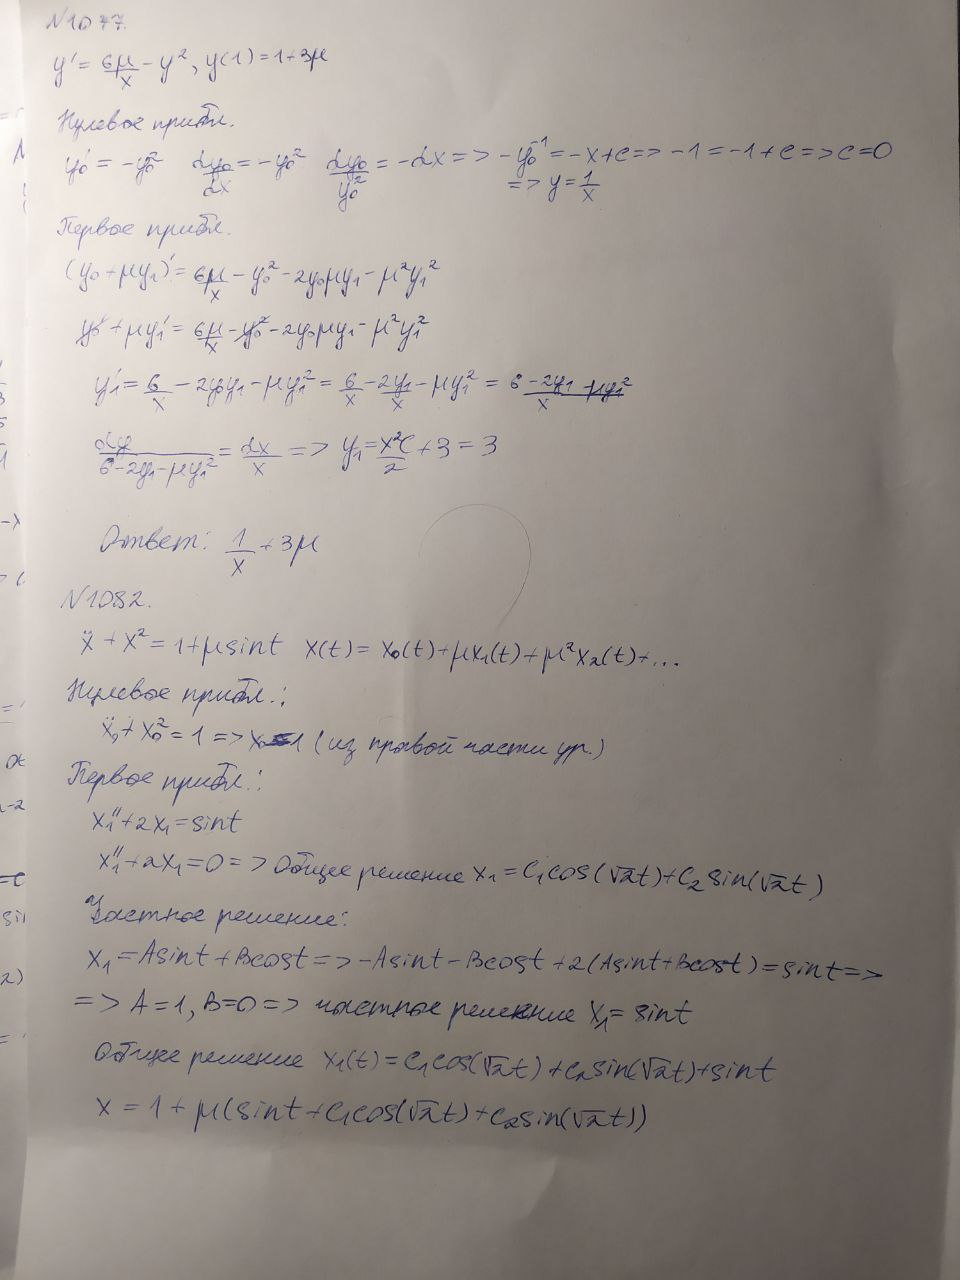 N1077.
y' = 6μ/x - y², y(1) = 1+3μ
Нулевое прибл.
y₀' = -y₀² dy₀/dx = -y₀² dy₀/y₀² = -dx => -y₀⁻¹ = -x+c => -1 = -1+c => c=0
=> y = 1/x
Первое прибл.
(y₀+μy₁)' = 6μ/x - y₀² - 2y₀μy₁ - μ²y₁²
y₀' + μy₁' = 6μ/x - y₀² - 2y₀μy₁ - μ²y₁²
y₁' = 6/x - 2y₀y₁ - μy₁² = 6/x - 2y₁/x - μy₁² = 6-2y₁/x
dy/6-2y₁-μy₁² = dx/x => y₁ = x²c/2 + 3 = 3
Ответ: 1/x + 3μ
N1082.
ẍ + x² = 1+μsint x(t) = x₀(t)+μx₁(t)+μ²x₂(t)+...
Нулевое прибл.:
ẍ₀ + x₀² = 1 => x₀=1 (из правой части ур.)
Первое прибл.:
x₁'' + 2x₁ = sint
x₁'' + 2x₁ = 0 => Общее решение x₁ = C₁cos(√2t)+C₂sin(√2t)
Частное решение:
x₁ = Asint + Bcost => -Asint - Bcost + 2(Asint+Bcost) = sint =>
=> A=1, B=0 => частное решение x₁ = sint
Общее решение x₁(t) = C₁cos(√2t)+C₂sin(√2t)+sint
x = 1 + μ(sint+C₁cos(√2t)+C₂sin(√2t))